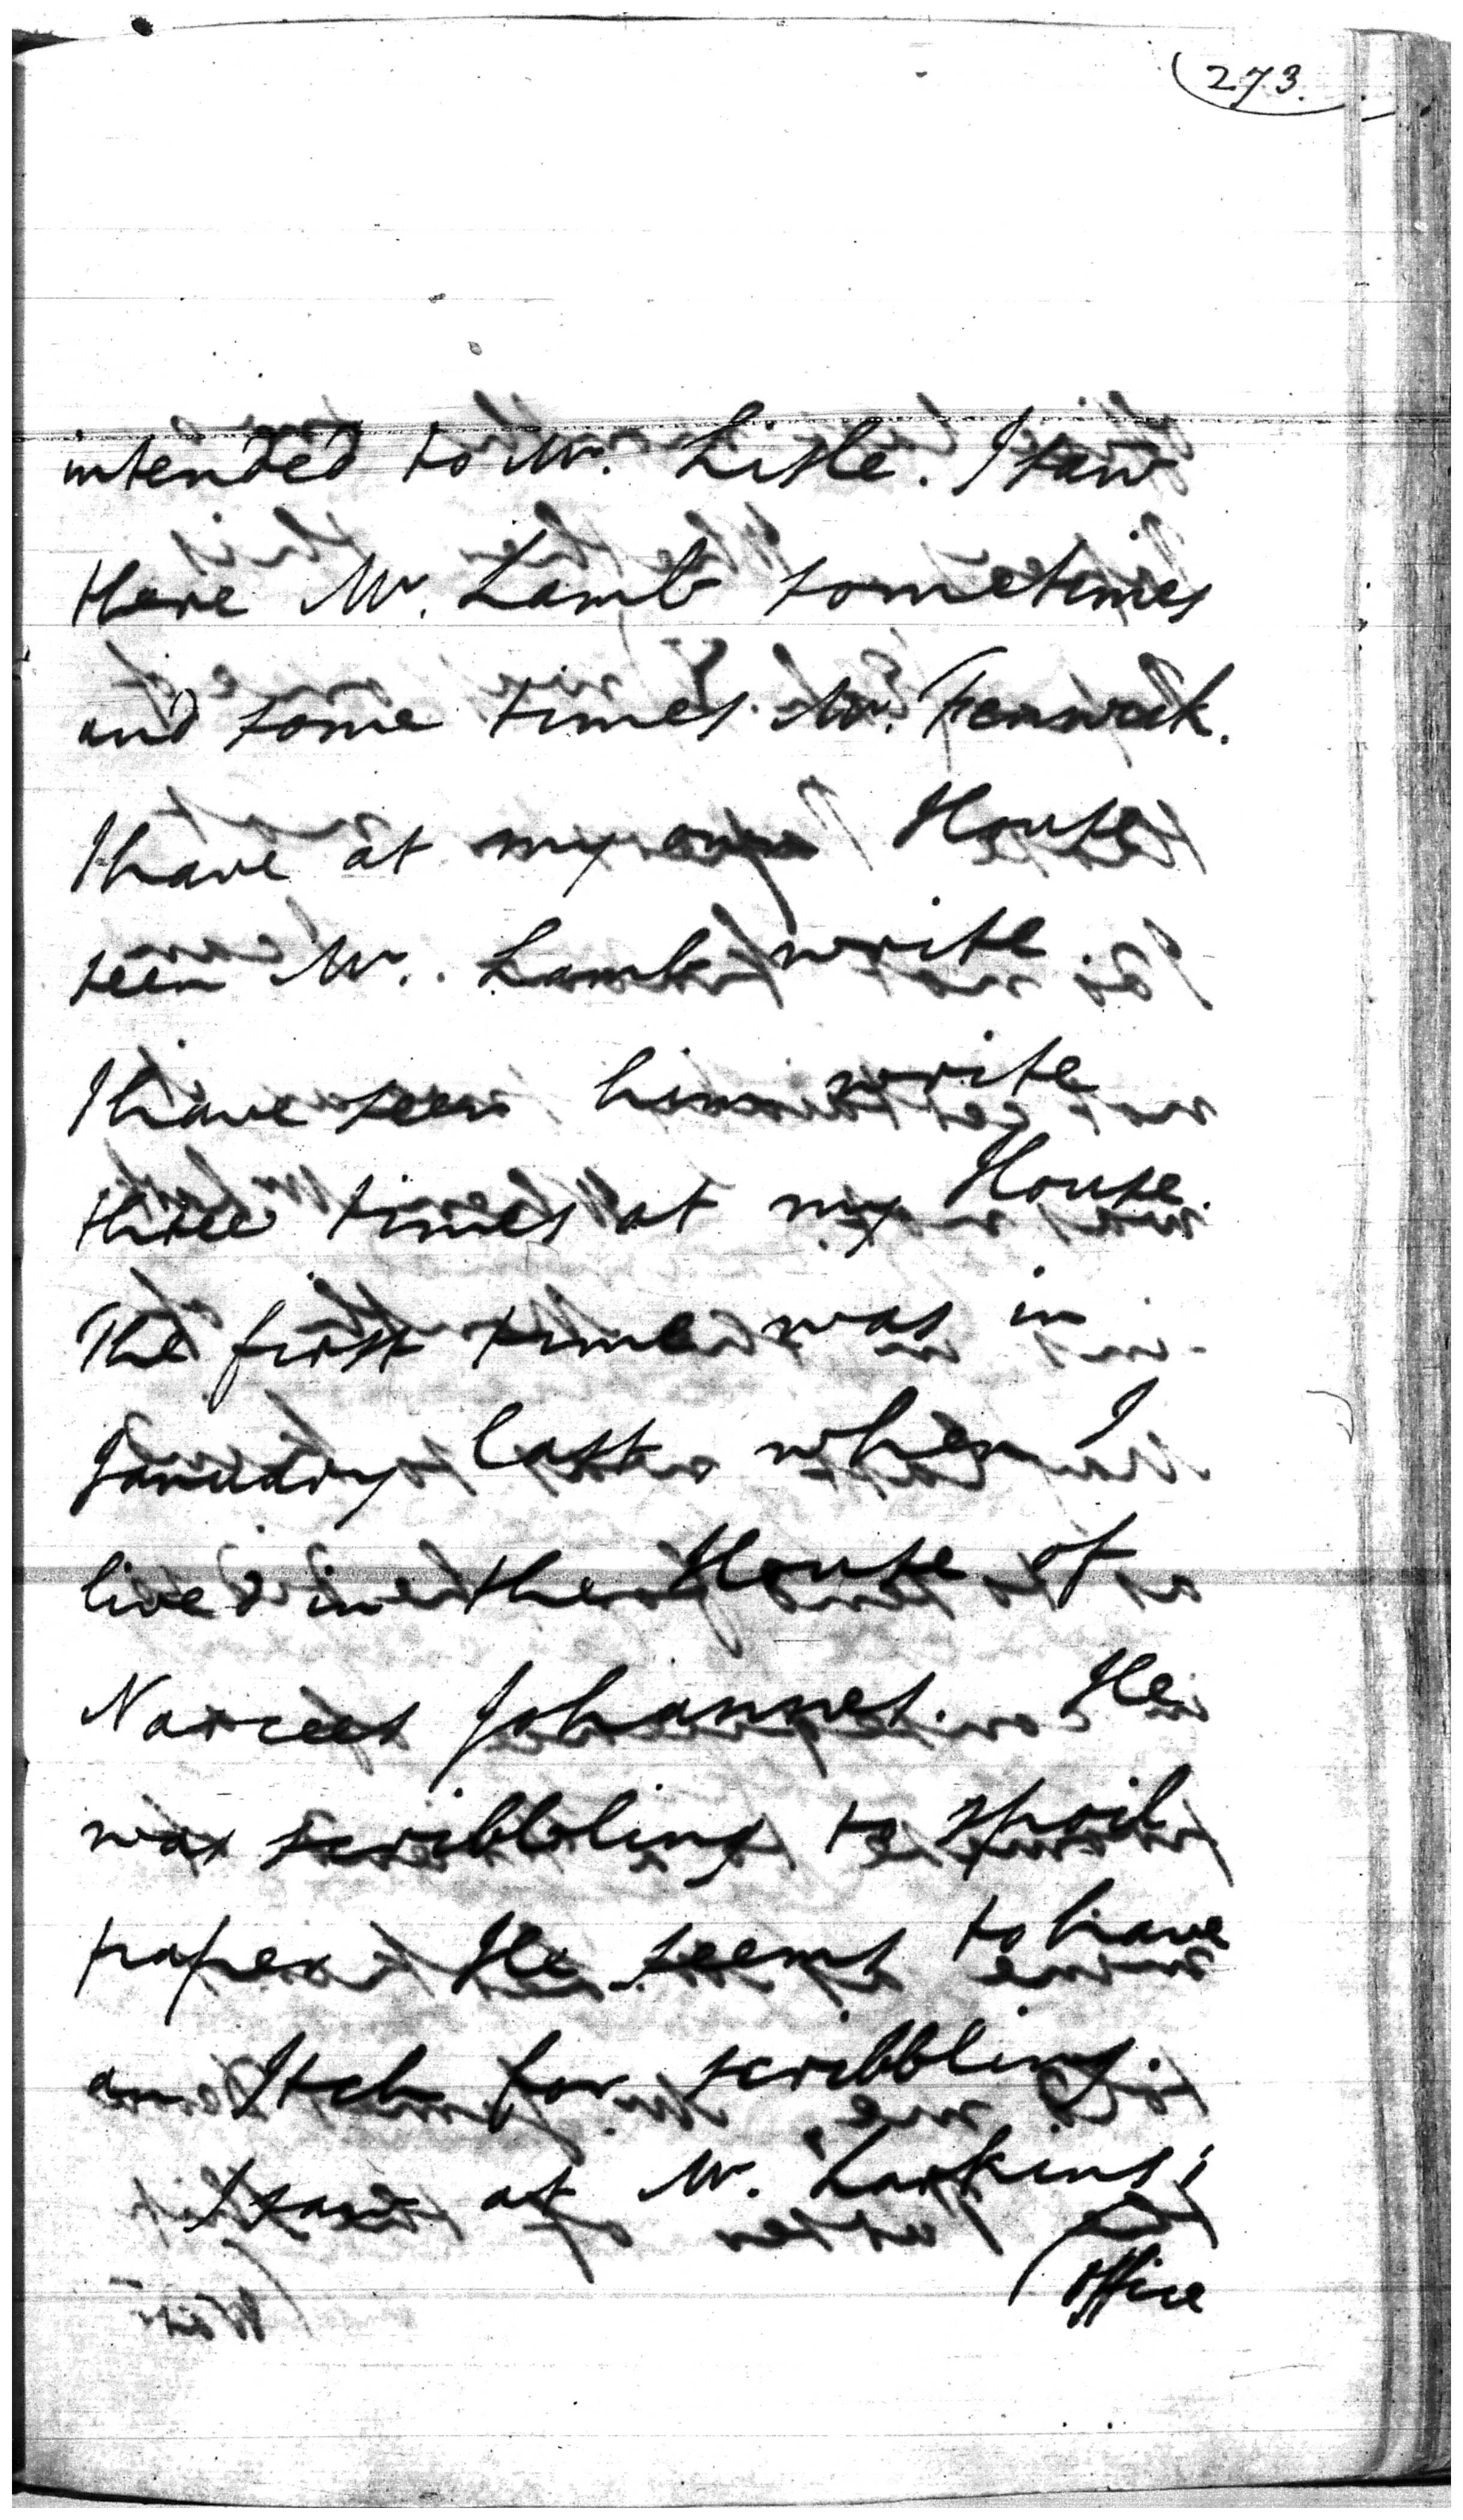 273.
intended to Mr. Lisle. I saw
there Mr. Lamb sometimes
and some times Mr. Fenwick.
I have at my own House
seen Mr. Lamb write
I have seen him write
three times at my House.
The first time was in
January last when I
lived in the House of
Narcees Johannes. He
was scribbling to spoil
paper He seems to have
an Itch for scribbling.
I saw at Mr. Larkins;
office